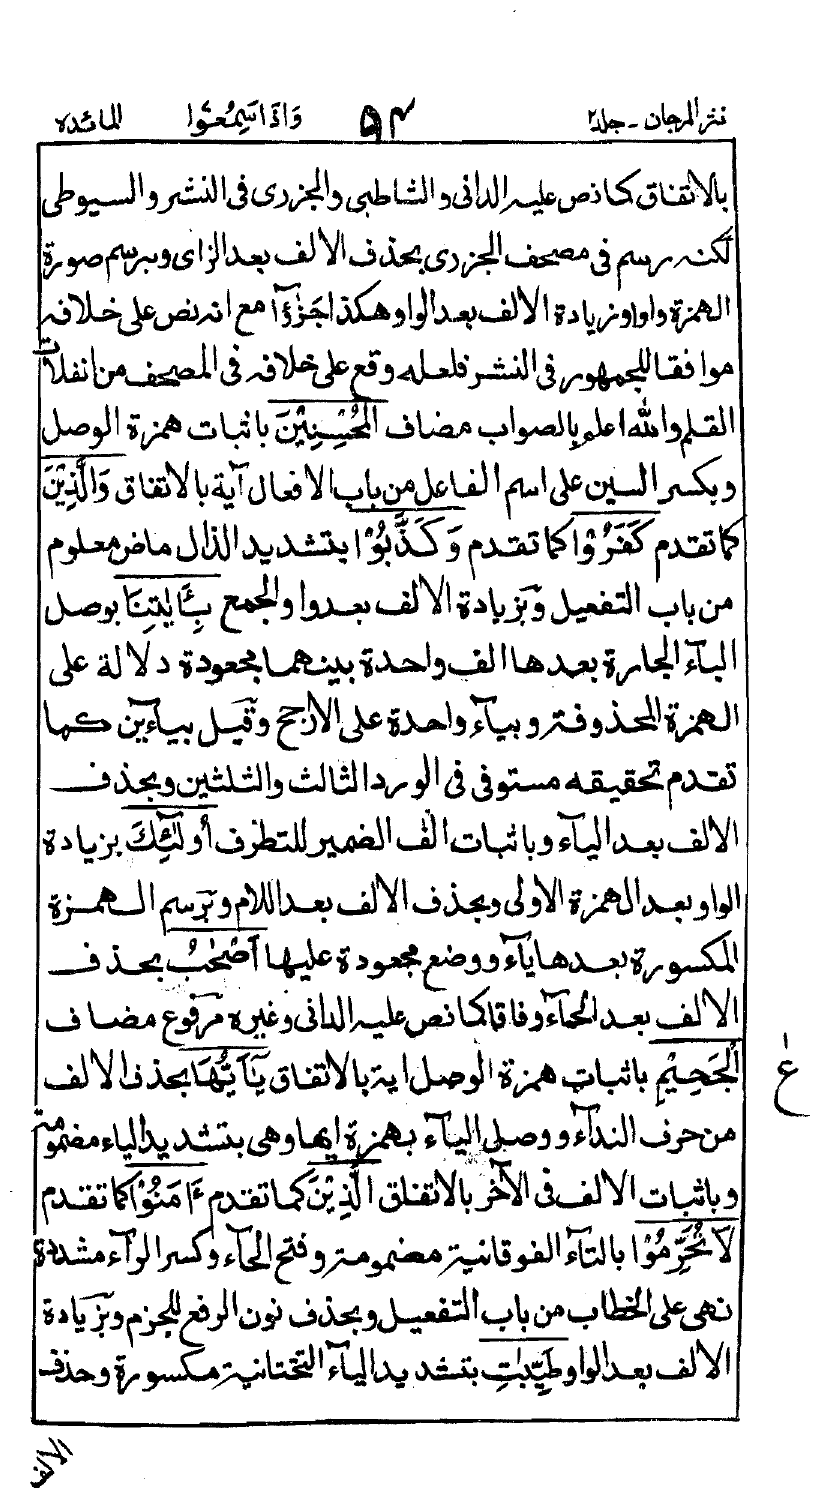 نثر المرجان ـ جلد٢ ٥٣ وَاِذَا سَمِعُوْا المائدة
بالاتفاق كما نص عليه الدانى والشاطبى والجزرى فى النشر والسيوطى
لكنه رسم فى مصحف الجزرى بحذف الالف بعد الزاى وبرسم صورة
الهمزة واوا وزيادة الالف بعد الواو هكذا جَزٰٓؤُا مع انه نص على خلافه
موافقا للجمهور فى النشر فلعله وقع على خلافه فى المصحف من انفلات
القلم والله اعلم بالصواب مضاف الْمُحْسِنِيْنَ باثبات همزة الوصل
وبكسر السين على اسم الفاعل من باب الافعال آية بالاتفاق وَالَّذِيْنَ
كما تقدم كَفَرُوْا كما تقدم وَكَذَّبُوْا بتشديد الذال ماض معلوم
من باب التفعيل وبزيادة الالف بعد واو الجمع بِـَٔايٰتِنَا بوصل
البآء الجارة بعدها الف واحدة بينهما مجعودة دلالة على
الهمزة المحذوفة وبيآء واحدة على الارجح وقيل بياءين كما
تقدم تحقيقه مستوفى فى الورد الثالث والثلثين وبحذف
الالف بعد اليآء وباثبات الف الضمير للتطرف أُولٰٓئِكَ بزيادة
الواو بعد الهمزة الاولى وبحذف الالف بعد اللام وبرسم الهمزة
المكسورة بعدها يآء ووضع مجعودة عليها اَصْحٰبُ بحذف
الالف بعد الحآء وفاقا كما نص عليه الدانى وغيره مرفوع مضاف
الْجَحِيْمِ باثبات همزة الوصل اية بالاتفاق يٰٓاَيُّهَا بحذف الالف
ع
من حرف الندآء ووصل اليآء بهمزة ايها وهى بتشديد الياء مضمومة
وباثبات الالف فى الآخر بالاتفاق الَّذِيْنَ كما تقدم ءَامَنُوْا كما تقدم
لَا تُحَرِّمُوْا بالتآء الفوقانية مضمومة وفتح الحآء وكسر الرآء مشددة
نهى على الخطاب من باب التفعيل وبحذف نون الرفع للجزم وبزيادة
الالف بعد الواو طَيِّبٰتِ بتشديد اليآء التحتانية مكسورة وحذف
الالف